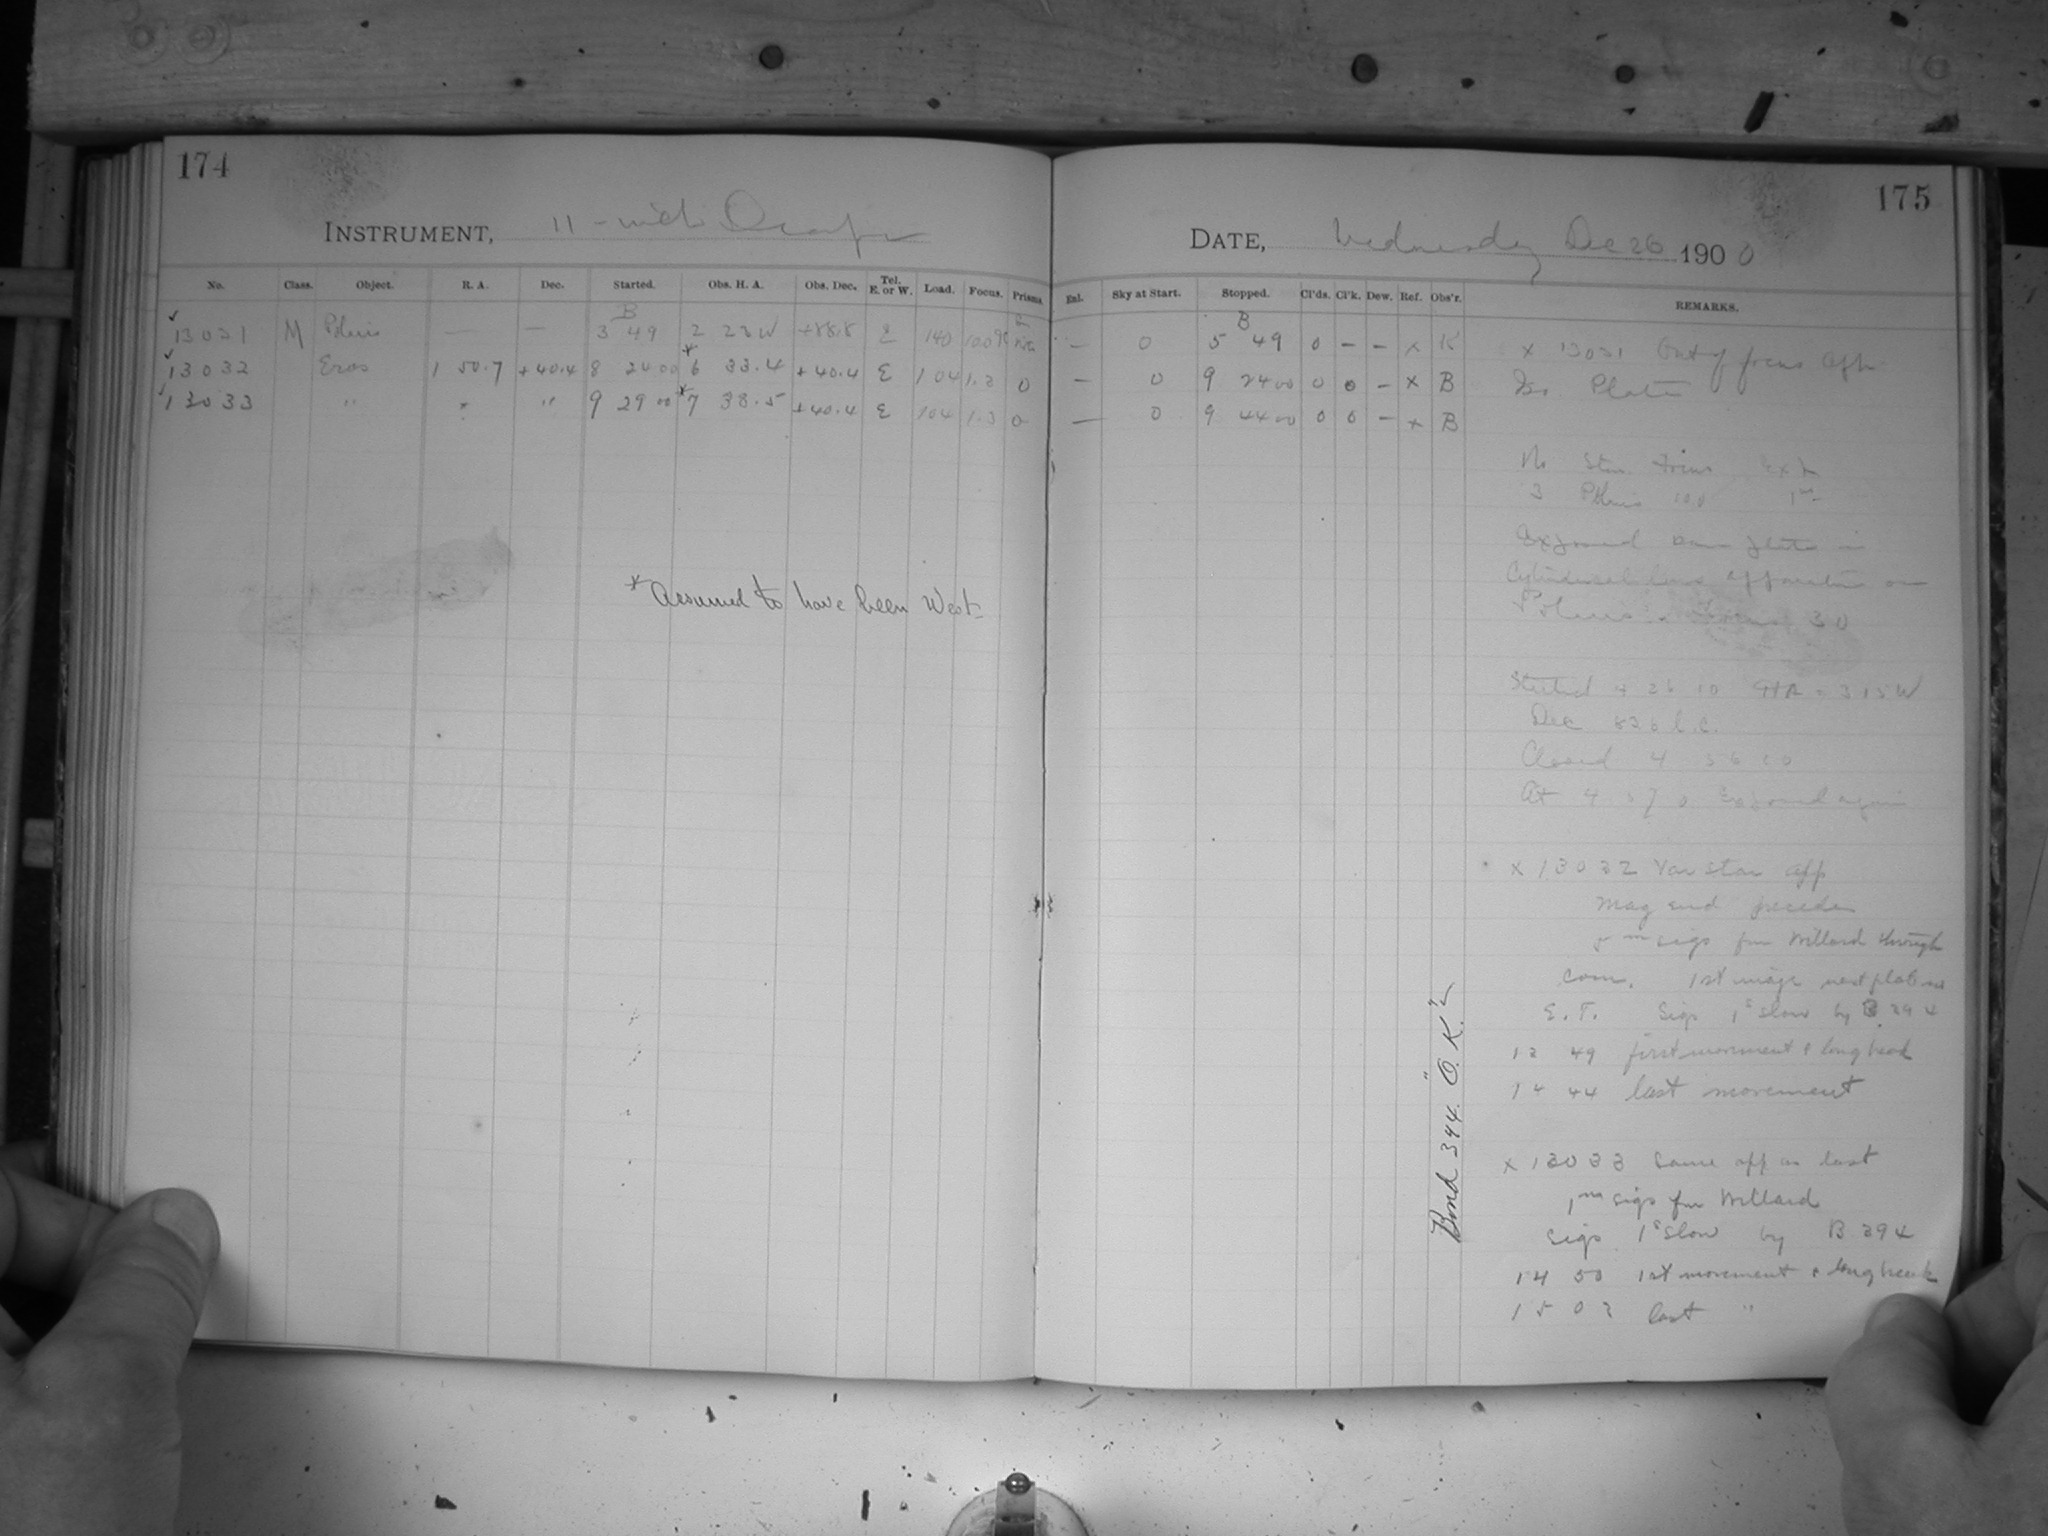 174
INSTRUMENT, 11-inch Draper
No. Class. Object. R. A. Dec. Started. Obs. H. A. Obs. Dec. Tel. E. or W. Load. Focus. Prisms.
13031 M Polaris — — B 3 49 2 23 W +88.8 E 140
13032 Eros 1 50.7 +40.4 8 24 00 *6 33.4 +40.4 E 104 1.3 0
13033 " " " 9 29 00 *7 38.5 +40.4 E 104 1.3 0
* Assumed to have been West
175
DATE, Wednesday Dec 26 1900
Enl. Sky at Start. Stopped. Cl'ds. Cl'k. Dew. Ref. Obs'r. REMARKS.
— 0 B 5 49 0 — — x K
— 0 9 24 00 0 0 — x B
— 0 9 44 00 0 0 — x B
x 13031 Out of focus app.
Iso. Plate
No Star Focus Exp
3 Polaris 100 1m
Exposed same plate in
Cylindrical lens apparatus on
Polaris. Focus 30
Started 4 26 10 HA = 3 15 W
Dec 826 l.c.
Closed 4 36 10
At 4 37 0 Exposed again
x 13032 Var star app
Mag end precedes
5m sigs from Willard through
Com. 1st image
E. F. Sigs 1s slow by B 394
12 49 first movement & long break
14 44 last movement
x 13033 Same app as last
1m sigs from Willard
Sigs 1s slow by B 394
14 50 1st movement & long break
15 02 last "
Bond 394. "O. K."